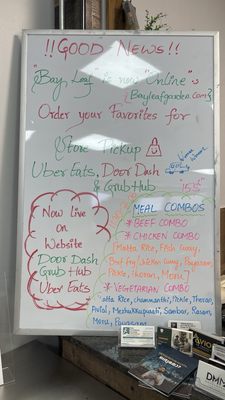 !! GOOD NEWS !!
"Bay Leaf" is now "Online"
(Bayleafgarden.com)
Order your Favorites for
Store Pickup
Uber Eats, Door Dash
& Grub Hub
Now live
on
Website
Door Dash
Grub Hub
Uber Eats
MEAL COMBOS
* BEEF COMBO
* CHICKEN COMBO
(Matta Rice, Fish Curry,
Beef fry/Chicken curry, Payasam
Pickle, Thoran, Moru)
* VEGETARIAN COMBO
Matta Rice, Chammanthi, Pickle, Thoran,
Avial, Mezhukkupuratti, Sambar, Rasam,
Moru, Payasam
DMM